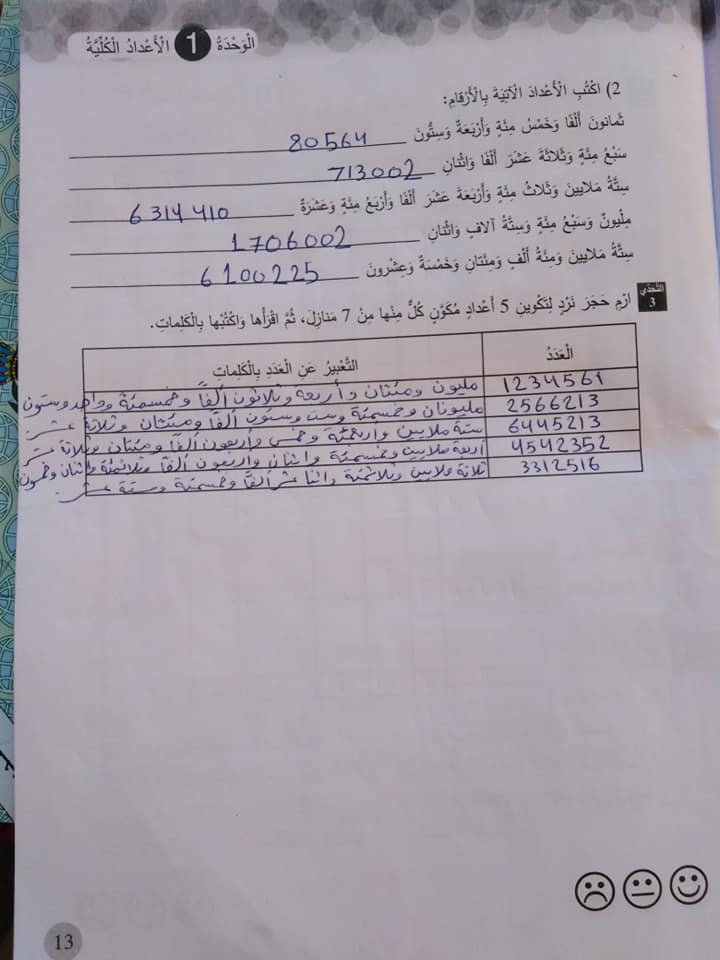 الْوَحْدَةُ 1 الْأَعْدادُ الْكُلِّيَّةُ
2) اكْتُبِ الْأَعْدادَ الْآتِيَةَ بِالْأَرْقامِ:
ثَمانونَ أَلْفًا وَخَمْسُ مِئَةٍ وَأَرْبَعَةٌ وَسِتُّونَ 80564
سَبْعُ مِئَةٍ وَثَلاثَةَ عَشَرَ أَلْفًا وَاثْنانِ 713002
سِتَّةُ مَلايينَ وَثَلاثُ مِئَةٍ وَأَرْبَعَةَ عَشَرَ أَلْفًا وَأَرْبَعُ مِئَةٍ وَعَشَرَةٌ 6314410
مِلْيونٌ وَسَبْعُ مِئَةٍ وَسِتَّةُ آلافٍ وَاثْنانِ 1706002
سِتَّةُ مَلايينَ وَمِئَةُ أَلْفٍ وَمِئَتانِ وَخَمْسَةٌ وَعِشْرونَ 6100225
التَّحَدّي 3 ارْمِ حَجَرَ نَرْدٍ لِتَكْوينِ 5 أَعْدادٍ مُكَوَّنٍ كُلٌّ مِنْها مِنْ 7 مَنازِلَ، ثُمَّ اقْرَأْها وَاكْتُبْها بِالْكَلِماتِ.
الْعَدَدُ التَّعْبيرُ عَنِ الْعَدَدِ بِالْكَلِماتِ
1234561 مليون ومئتان وأربعة وثلاثون ألفاً وخمسمئة وواحد وستون
2566213 مليونان وخمسمئة وست وستون ألفاً ومئتان وثلاثة عشر
6445213 ستة ملايين واربعمئة وخمس واربعون ألفاً ومئتان وثلاثة عشر
4542352 أربعة ملايين وخمسمئة واثنان واربعون ألفاً وثلاثمئة واثنان وخمسون
3312516 ثلاثة ملايين وثلاثمئة واثنا عشر ألفاً وخمسمئة وستة عشر
13